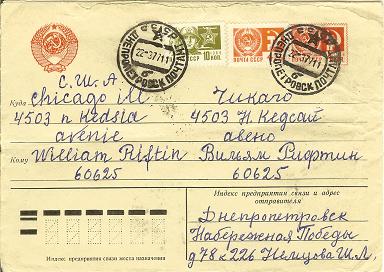 СССР
ДНЕПРОПЕТРОВСК ПОЧТАМТ
ПОЧТА СССР
10 КОП
С.Ш.А
Куда Chicago ill Чикаго
4503 n Kedsia 4503 Н. Кедсай
avenie авено
Кому William Riftin Вильям Рифтин
60625 60625
Индекс предприятия связи и адрес отправителя
Днепропетровск
Набережная Победы
д 78 к 226 Немцова Ш.Л.
Индекс предприятия связи места назначения